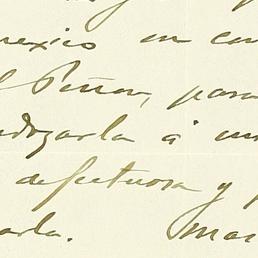 a
mexico en con
l Señor, para
dozarla á un
defectuosa y
arla. Mas